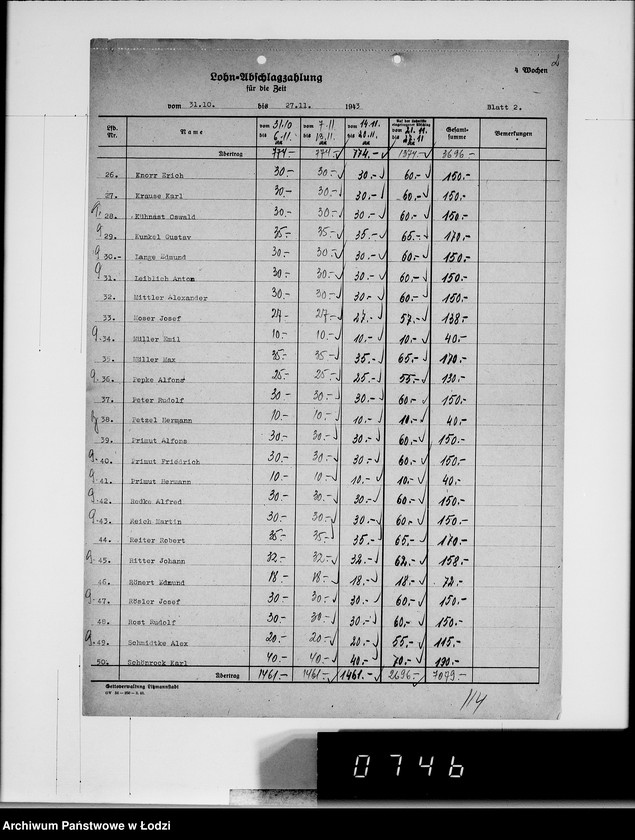 4 Wochen
Lohn-Abschlagzahlung
für die Zeit
vom 31.10. bis 27.11. 1943 Blatt 2.
Lfd. Nr. Name vom 31/10 bis 6.11. vom 7.11 bis 13.11. vom 14.11. bis 20.11. vom 21.11. bis 27.11 Gesamt-summe Bemerkungen
Übertrag 774.- 774.- 774.- 1374.- 3696.-
26. Knorr Erich 30.- 30.- 30.- 60.- 150.-
27. Krause Karl 30.- 30.- 30.- 60.- 150.-
28. Kühnast Oswald 30.- 30.- 30.- 60.- 150.-
29. Kunkel Gustav 35.- 35.- 35.- 65.- 170.-
30. Lange Edmund 30.- 30.- 30.- 60.- 150.-
31. Leiblich Anton 30.- 30.- 30.- 60.- 150.-
32. Mittler Alexander 30.- 30.- 30.- 60.- 150.-
33. Moser Josef 27.- 27.- 27.- 57.- 138.-
34. Müller Emil 10.- 10.- 10.- 10.- 40.-
35. Müller Max 35.- 35.- 35.- 65.- 170.-
36. Pepke Alfons 25.- 25.- 25.- 55.- 130.-
37. Peter Rudolf 30.- 30.- 30.- 60.- 150.-
38. Petzel Hermann 10.- 10.- 10.- 10.- 40.-
39. Primut Alfons 30.- 30.- 30.- 60.- 150.-
40. Primut Friedrich 30.- 30.- 30.- 60.- 150.-
41. Primut Hermann 10.- 10.- 10.- 10.- 40.-
42. Radke Alfred 30.- 30.- 30.- 60.- 150.-
43. Reich Martin 30.- 30.- 30.- 60.- 150.-
44. Reiter Robert 35.- 35.- 35.- 65.- 170.-
45. Ritter Johann 32.- 32.- 32.- 62.- 158.-
46. Rönert Edmund 18.- 18.- 18.- 18.- 72.-
47. Rösler Josef 30.- 30.- 30.- 60.- 150.-
48. Rost Rudolf 30.- 30.- 30.- 60.- 150.-
49. Schmidtke Alex 20.- 20.- 20.- 55.- 115.-
50. Schönrock Karl 40.- 40.- 40.- 70.- 190.-
Übertrag 1461.- 1461.- 1461.- 2696.- 7079.-
Gettoverwaltung Litzmannstadt
114
0746
Archiwum Państwowe w Łodzi